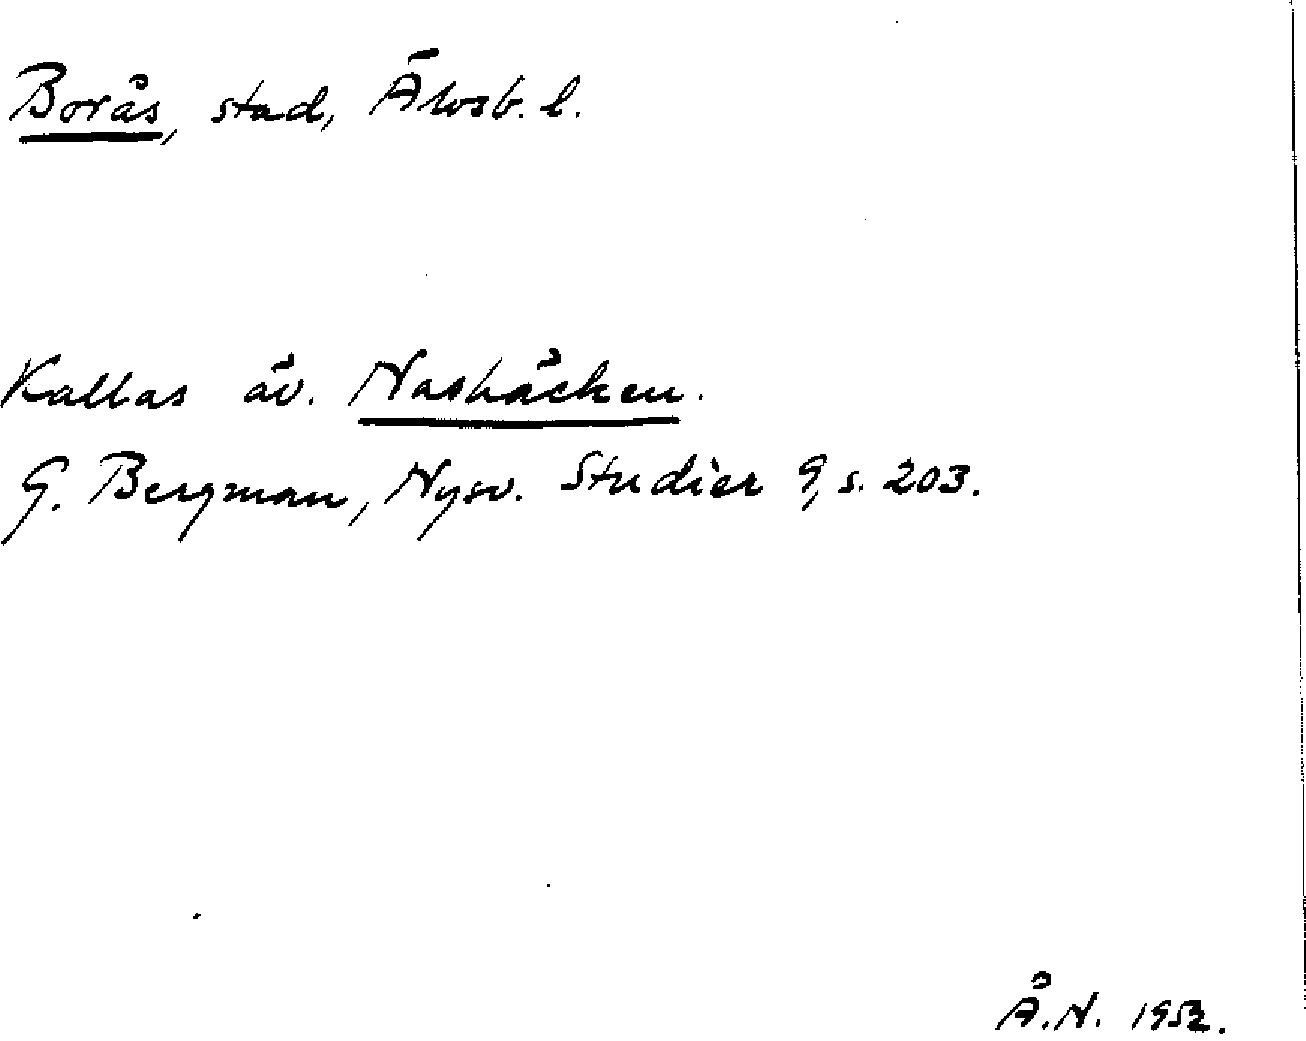 Borås, stad, Älvsb. l.
Kallas äv. Nasbäcken.
G. Bergman, Nysv. Studier 9, s. 203.
Å.N. 1952.